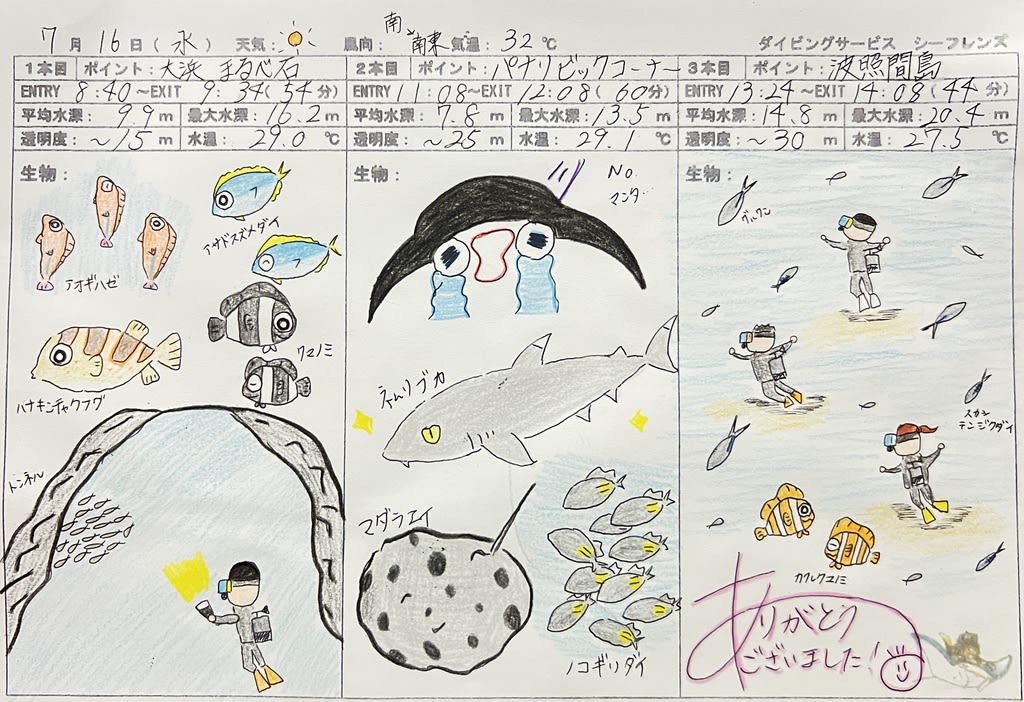 7月16日(水) 天気: 風向: 南~南東 気温: 32℃
ダイビングサービス シーフレンズ
1本目 ポイント: 大浜 まるべ石
ENTRY 8:40~EXIT 9:34(54分)
平均水深: 9.9m 最大水深: 16.2m
透明度: ~15m 水温: 29.0℃
生物:
アオギハゼ
アサドスズメダイ
クマノミ
ハナキンチャクフグ
トンネル
2本目 ポイント: パナリビックコーナー
ENTRY 11:08~EXIT 12:08(60分)
平均水深: 7.8m 最大水深: 13.5m
透明度: ~25m 水温: 29.1℃
生物:
No.
マンタ…
ネムリブカ
マダラエイ
ノコギリダイ
3本目 ポイント: 波照間島
ENTRY 13:24~EXIT 14:08(44分)
平均水深: 14.8m 最大水深: 20.4m
透明度: ~30m 水温: 27.5℃
生物:
グルクン
スカシ
テンジクダイ
カクレクマノミ
ありがとう
ございました!